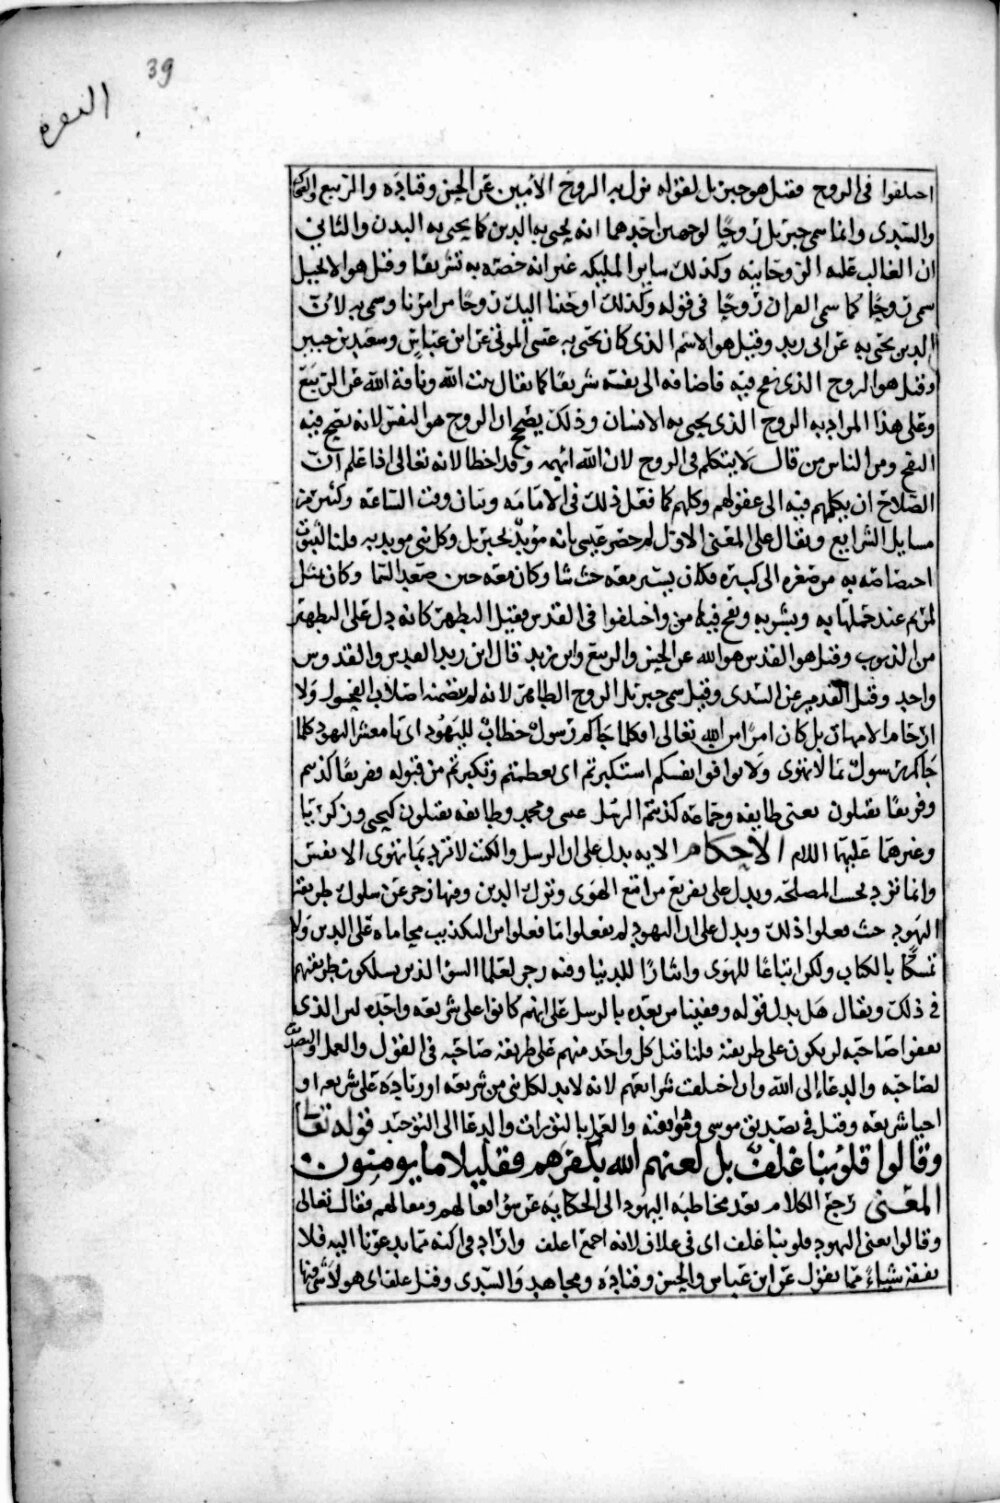 39
البقره
اختلفوا في الروح فقيل هو جبريل لقوله نزل به الروح الأمين عن الحسن وقتاده والربيع والضحاك
والسدي وانما سمي جبريل روحًا لوجهين احدهما انه يحيي به الدين كما يحيى به البدن والثاني
ان الغالب عليه الروحانيه وكذلك ساير المليكه غير انه خصه به تشريفًا وقيل هو الانجيل
سمي روحًا كما سمي القران روحًا في قوله وكذلك اوحينا اليك روحًا من امرنا وسمي به لان
الدين يحيى به عن ابن زيد وقيل هو الاسم الذي كان يحيي به عيسى الموتى عن ابن عباس وسعيد بن جبير
وقيل هو الروح الذي نفخ فيه فاضافه الى نفسه تشريفًا كما يقال بيت الله وناقة الله عن الربيع
وعلى هذا المراد به الروح الذي يحيى به الانسان وذلك يصح لان الروح هو النفس لانه يصح فيه
النفخ ومن الناس من قال لا يتكلم في الروح لان الله ابهمه وقد اخطا لانه تعالى اذا علم ان
الصلاح ان يكلهم فيه الى عقولهم وكلهم كما فعل ذلك في الامامه وبيان وقت الساعه وكثير من
مسايل الشرايع ويقال على المعنى الاول لم خص عيسى بانه مؤيد بجبريل وكل نبي مويد به قلنا لثبوت
اختصاصه به من صغره الى كبره فكان يسير معه حيث شا وكان معه حين صعد السما وكان تمثل
لمريم عند حملها به وبشر به ونفخ فيها من واختلفوا في القدس فقيل الطهر كانه دل على التطهر
من الذنوب وقيل هو القدس هو الله عن الحسن والربيع وابن زيد قال ابن زيد القدس والقدوس
واحد وقيل القدس عن السدي وقيل سمي جبريل الروح الطاهر لانه لم تضمنه اصلاب الفحول ولا
ارحام الامهات بل كان امرًا من الله تعالى افكلما جاكم رسول خطاب لليهود اي يا معشر اليهود كلما
جاكم رسول بما لا تهوى ولا يوافق انفسكم استكبرتم اي تعظمتم وتكبرتم من قبوله ففريقًا كذبتم
وفريقًا تقتلون يعني طايفه وجماعه كذبتم الرسل عيسى ومحمد وطايفه تقتلون كيحيى وزكريا
وغيرهما عليهما السلام الاحكام الايه يدل على ان الرسل والكتب لا ترد بما تهوى الانفس
وانما ترد بحسب المصلحه ويدل على تقريع من اتبع الهوى وترك الدين وفيها زجر عن سلوك طريقه
اليهود حيث فعلوا ذلك ويدل على ان اليهود لم يفعلوا ما فعلوا من التكذيب محاماه على الدين ولا
تمسكًا بالكتاب ولكن اتباعًا للهوى وايثارًا للدنيا وفيه زجر لعلما السؤ الذين يسلكون طريقتهم
في ذلك ويقال هل يدل قوله وقفينا من بعده بالرسل على انهم كانوا على شريعه واحده ليس الذي
يقفوا صاحبه لم يكون على طريقته قلنا قيل كل واحد منهم على طريقة صاحبه في القول والعمل والتصديق
لصاحبه والدعا إلى الله وان اختلفت شرايعهم لانه لابد لكل نبي من شريعه او زيادة على شريعه او
احيا شريعه وقيل في تصديق موسى وموافقته والعمل بالتورات والدعا الى التوحيد قوله تعالى
وقالوا قلوبنا غلف بل لعنهم الله بكفرهم فقليلا ما يومنون
المعنى رجع الكلام بعد مخاطبه اليهود الى الحكايه عن سؤ افعالهم ومقالهم فقال تعالى
وقالوا يعني اليهود قلوبنا غلف اي في غلاف لانه اجمع اغلف واراد في اكنه مما تدعونا اليه فلا
نفقه شياءً مما تقول عن ابن عباس والحسن وقتاده ومجاهد والسدي وقيل غلف اي هو لا شي فيها